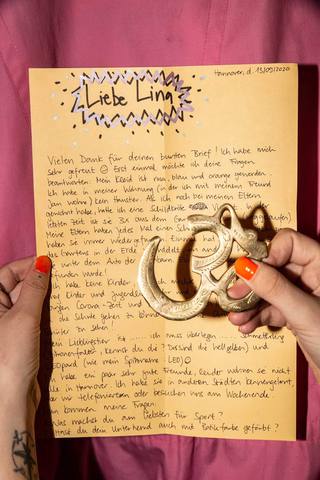 Hannover, d. 13/09/2020
Liebe Ling
Vielen Dank für deinen bunten Brief! Ich habe mich
sehr gefreut ☺ Erst einmal möchte ich deine Fragen
beantworten. Mein Kleid ist rosa, blau und orange geworden.
Ich habe in meiner Wohnung (in der ich mit meinem Freund
Jan wohne) kein Haustier. Als ich noch bei meinen Eltern
gewohnt habe, hatte ich eine Schildkröte
letzten Zeit ist sie 3x aus dem
Meine Eltern haben jedes Mal einen
haben sie immer wieder Einmal hat
im Garten in der Erde
unter dem Auto der
gefunden wurde!
Ich habe keine Kinder
mit Kinder und Jugend
Corona-Zeit und
die Schule gehen zu können
zu sehen!
Lieblingstier ist ..... ich muss überlegen ..... Schmetterling
(Zitronenfalter, kennst du die? Das sind die hellgelben) und
Leopard (wie mein Spitzname LEO)☺
Ich habe ein paar sehr gute Freunde, leider wohnen sie nicht
alle in Hannover. Ich habe sie in anderen Städten kennengelernt,
wir telefonieren oder besuchen uns am Wochenende.
kommen meine Fragen:
Was machst du am liebsten für Sport?
Hast du dein Unterhemd auch mit Batikfarbe gefärbt?